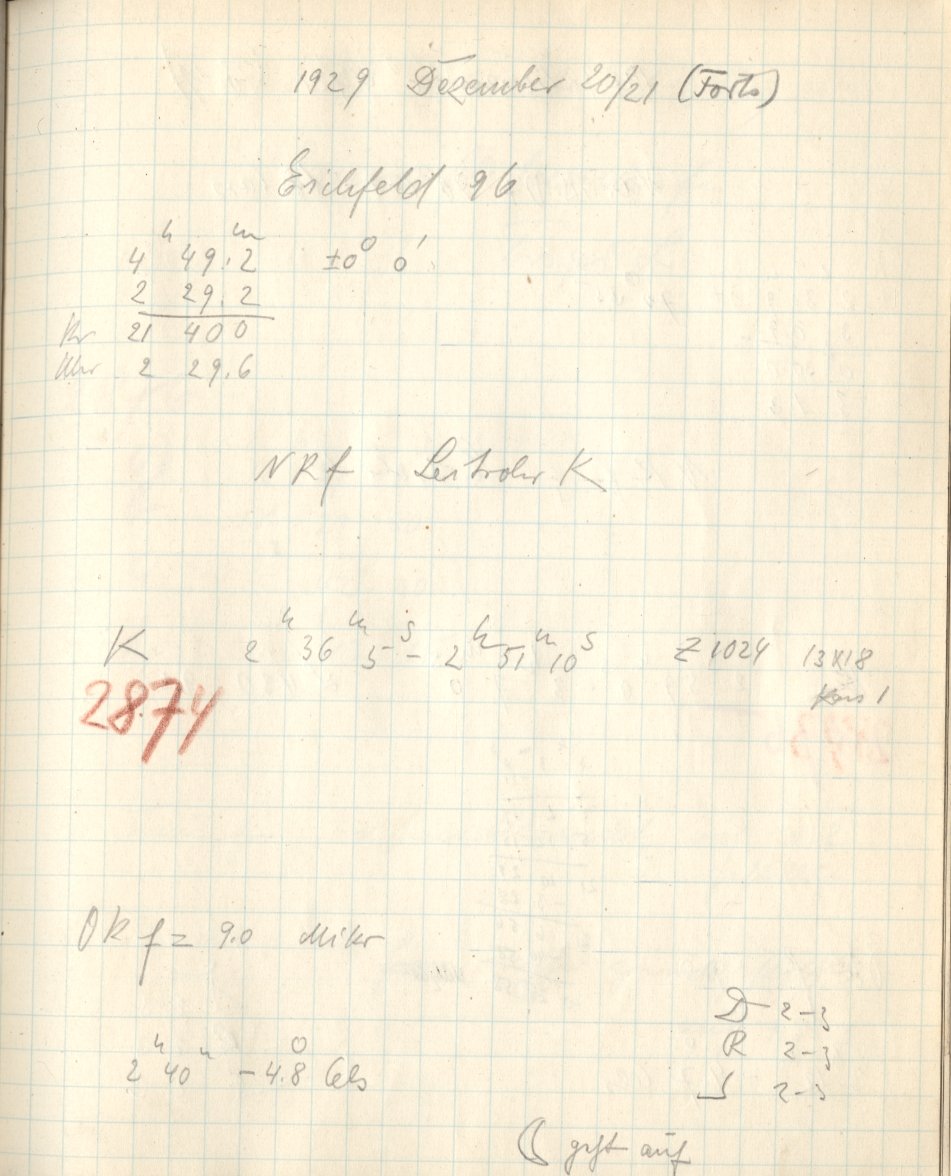 1929 Dezember 20/21 (Forts)
Eichfeld 96
4 h 49.2 m ±0° 0'
2 29.2
Kr 21 40 0
Uhr 2 29.6
NRf Leitrohr K
K 2 h 36 m 5 s – 2 h 51 m 10 s Z 1024 13x18
2874
OR f = 9.0 Mikr
D 2-3
R 2-3
2 h 40 m -4.8° Cels
S 2-3
☾ geht auf